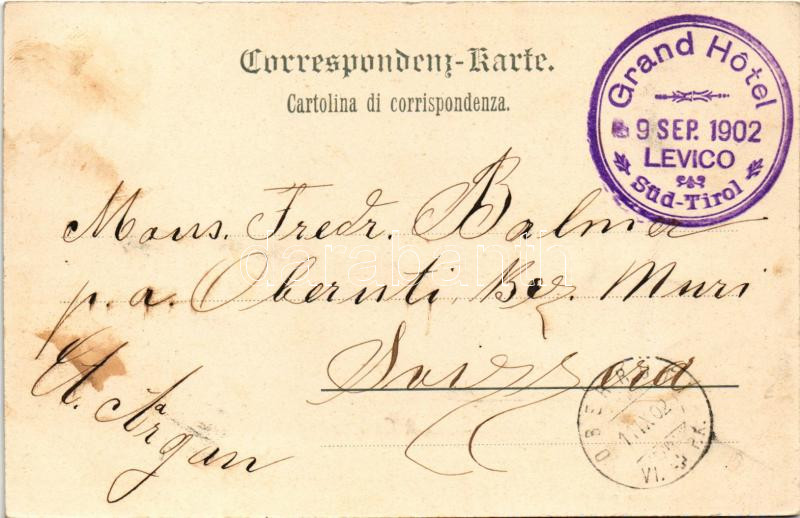 Correspondenz-Karte.
Cartolina di corrispondenza.
Grand Hôtel
9 SEP. 1902
LEVICO
Süd-Tirol
Mons. Fredr. Balmer
p. a. Oberuti, Bez. Muri
Svizzera
Ct. Argau
OBERRÜTI
VI.